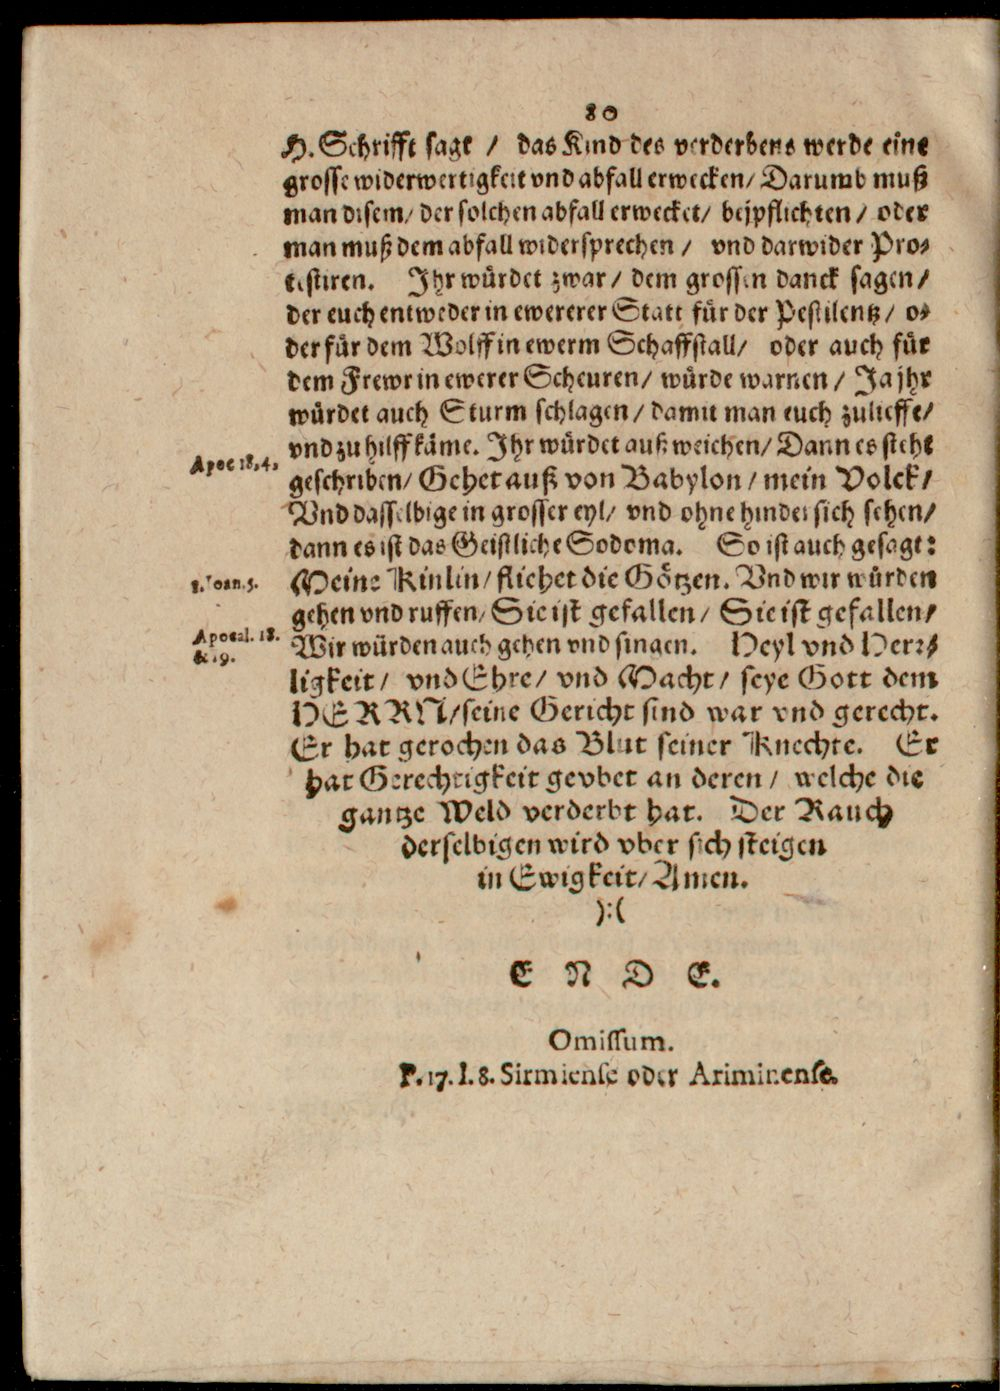 80
H. Schrifft sagt / das Kind des verderbens werde eine
grosse widerwertigkeit vnd abfall erwecken / Darumb muß
man disem / der solchen abfall erwecket / beypflichten / oder
man muß dem abfall widersprechen / vnd darwider Pro⸗
testiren. Ihr würdet zwar / dem grossen danck sagen /
der euch entweder in ewererer Statt für der Pestilentz / o⸗
der für dem Wolff in ewerm Schaffstall / oder auch für
dem Frewr in ewerer Scheuren / würde warnen / Ja jhr
würdet auch Sturm schlagen / damit man euch zulieffe /
vnd zu hilff käme. Ihr würdet auß weichen / Dann es steht
Apoc 18.4.
geschriben / Gehet auß von Babylon / mein Volck /
Vnd dasselbige in grosser eyl / vnd ohne hindersich sehen /
dann es ist das Geistliche Sodoma. So ist auch gesagt:
1. Ioan. 5.
Meine Kinlin / fliehet die Götzen. Vnd wir würden
gehen vnd ruffen / Sie ist gefallen / Sie ist gefallen /
Apocal. 18.
& 19.
Wir würden auch gehen vnd singen. Heyl vnd Herr⸗
ligkeit / vnd Ehre / vnd Macht / seye Gott dem
HERRN / seine Gericht sind war vnd gerecht.
Er hat gerochen das Blut seiner Knechte. Er
hat Gerechtigkeit gevbet an deren / welche die
gantze Weld verderbt hat. Der Rauch
derselbigen wird vber sich steigen
in Ewigkeit / Amen.
):(
E N D E.
Omissum.
P. 17. l. 8. Sirmiense oder Ariminense.